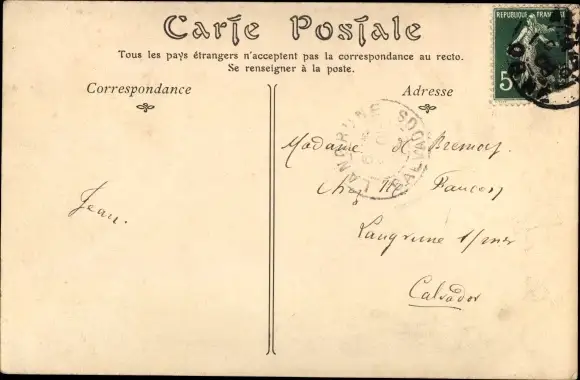 Carte Postale
Tous les pays étrangers n'acceptent pas la correspondance au recto.
Se renseigner à la poste.
Correspondance
Adresse
REPUBLIQUE FRANÇAISE
5
LANGRUNE
CALVADOS
Madame
Jean.
chez
Langrune s/mer
Calvados